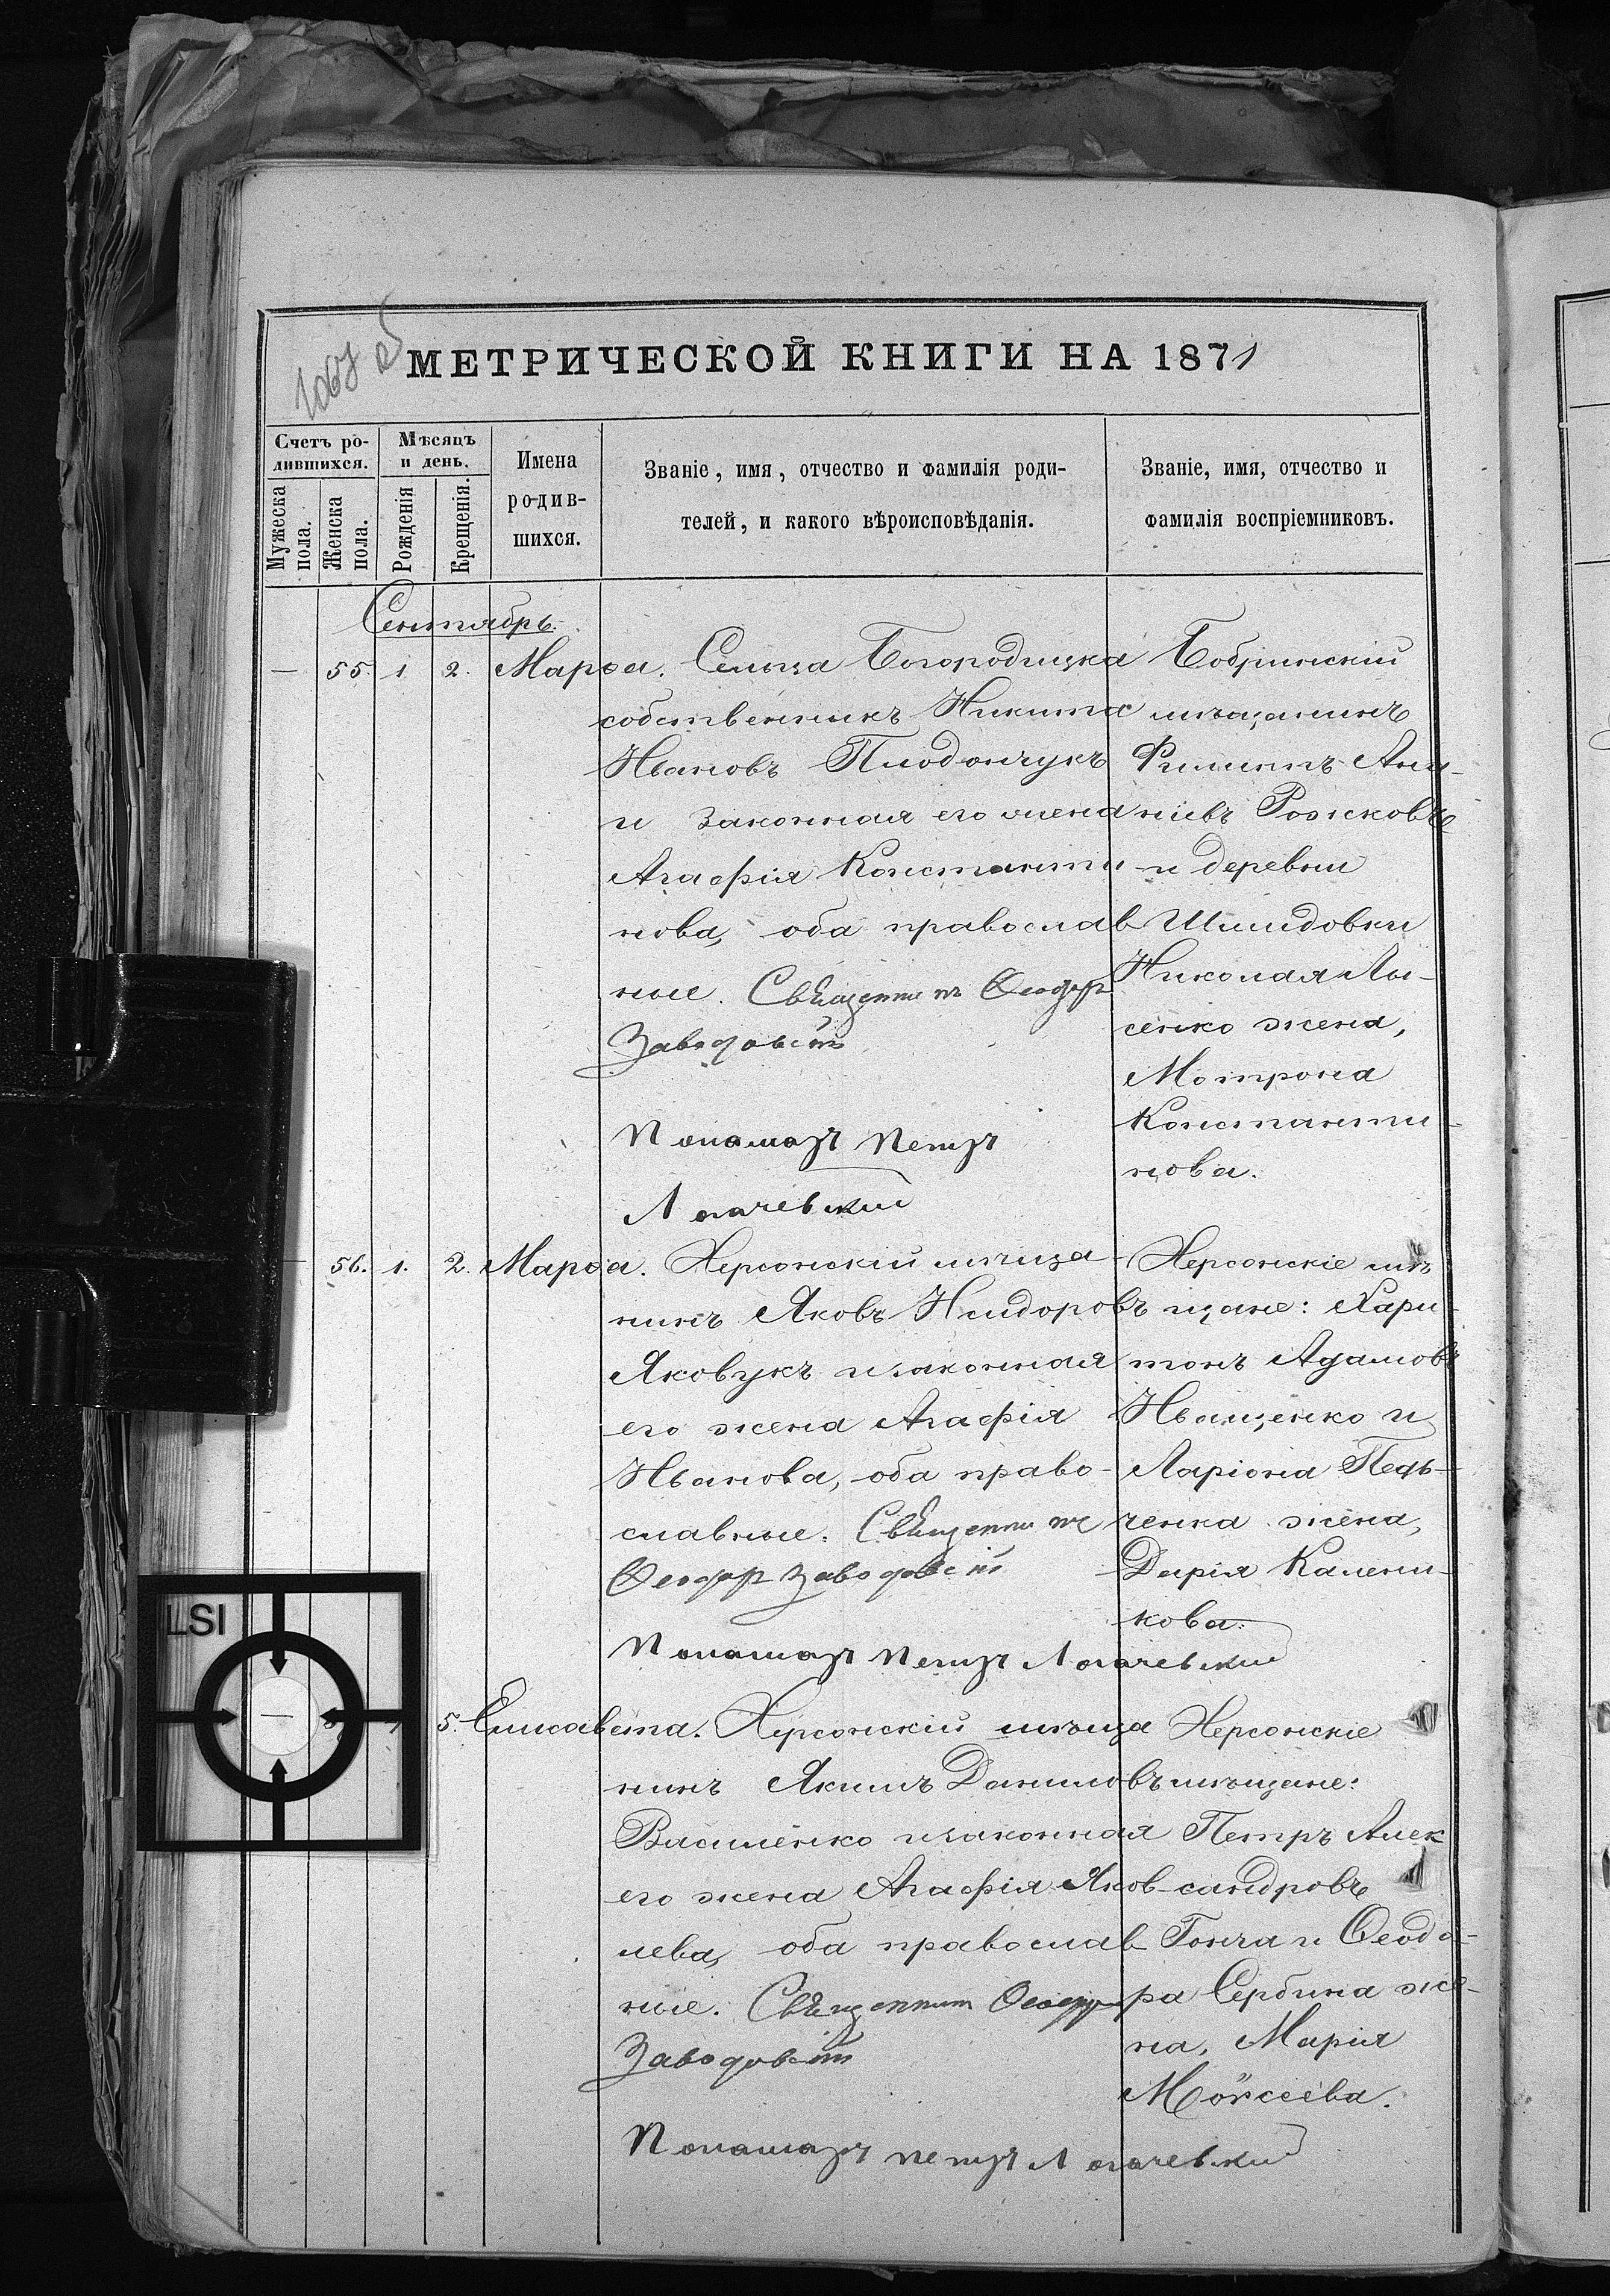 1067 об
МЕТРИЧЕСКОЙ КНИГИ НА 1871
Счетъ ро-
дившихся.
Мужеска
пола.
Женска
пола.
Мѣсяцъ
и день.
Рожденія
Крещенія.
Имена
родив-
шихся.
Званіе, имя, отчество и фамилія роди-
телей, и какого вѣроисповѣданія.
Званіе, имя, отчество и
фамилія воспріемниковъ.
Сентябрь.
— 55. 1. 2. Марѳа.
Сельца Богородицка
собственникъ Никита
Ивановъ Плодончукъ
и законная его жена
Агафія Константи
нова, оба православ
ные. Священникъ Ѳеодоръ
Заводовскій
Пономарь Петръ
Логачевскій
Бобринскій
мѣщанинъ
Филиппъ Ана-
ніевъ Рожковъ
и деревни
Шмидовки
Николая Лы-
сенко жена,
Мотрона
Константи-
нова.
— 56. 1. 2. Марѳа.
Херсонскій мѣща-
нинъ Яковъ Исидоровъ
Яковукъ и законная
его жена Агафія
Иванова, оба право-
славные. Священникъ
Ѳеодоръ Заводовскій
Пономарь Петръ Логачевскій
Херсонскіе мѣ
щане: Хари-
тонъ Адамовъ
Иващенко и
Ларіона Педь-
ченка жена,
Дарія Калени-
кова.
5. Елисавета.
Херсонскій мѣща
нинъ Якимъ Даниловъ
Василенко и законная
его жена Агафія Яков-
лева, оба православ
ные. Священникъ Ѳеодоръ
Заводовскій
Пономарь Петръ Логачевскій
Херсонскіе
мѣщане:
Петръ Алек
сандровъ
Гонча и Ѳеодо-
ра Сербина же-
на, Марія
Моѵсеева.
LSI